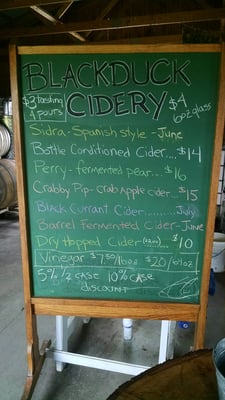 BLACKDUCK
$3 tasting
4 pours
CIDERY
$4
6oz glass
Sidra - Spanish style - June
Bottle Conditioned Cider.... $14
Perry - fermented pear.... $16
Crabby Pip - Crab Apple cider... $15
Black Currant Cider.......... July
Barrel Fermented Cider - June
Dry Hopped Cider $10
Vinegar $7.50/16oz $20/64oz
5% 1/2 CASE 10% CASE
DISCOUNT